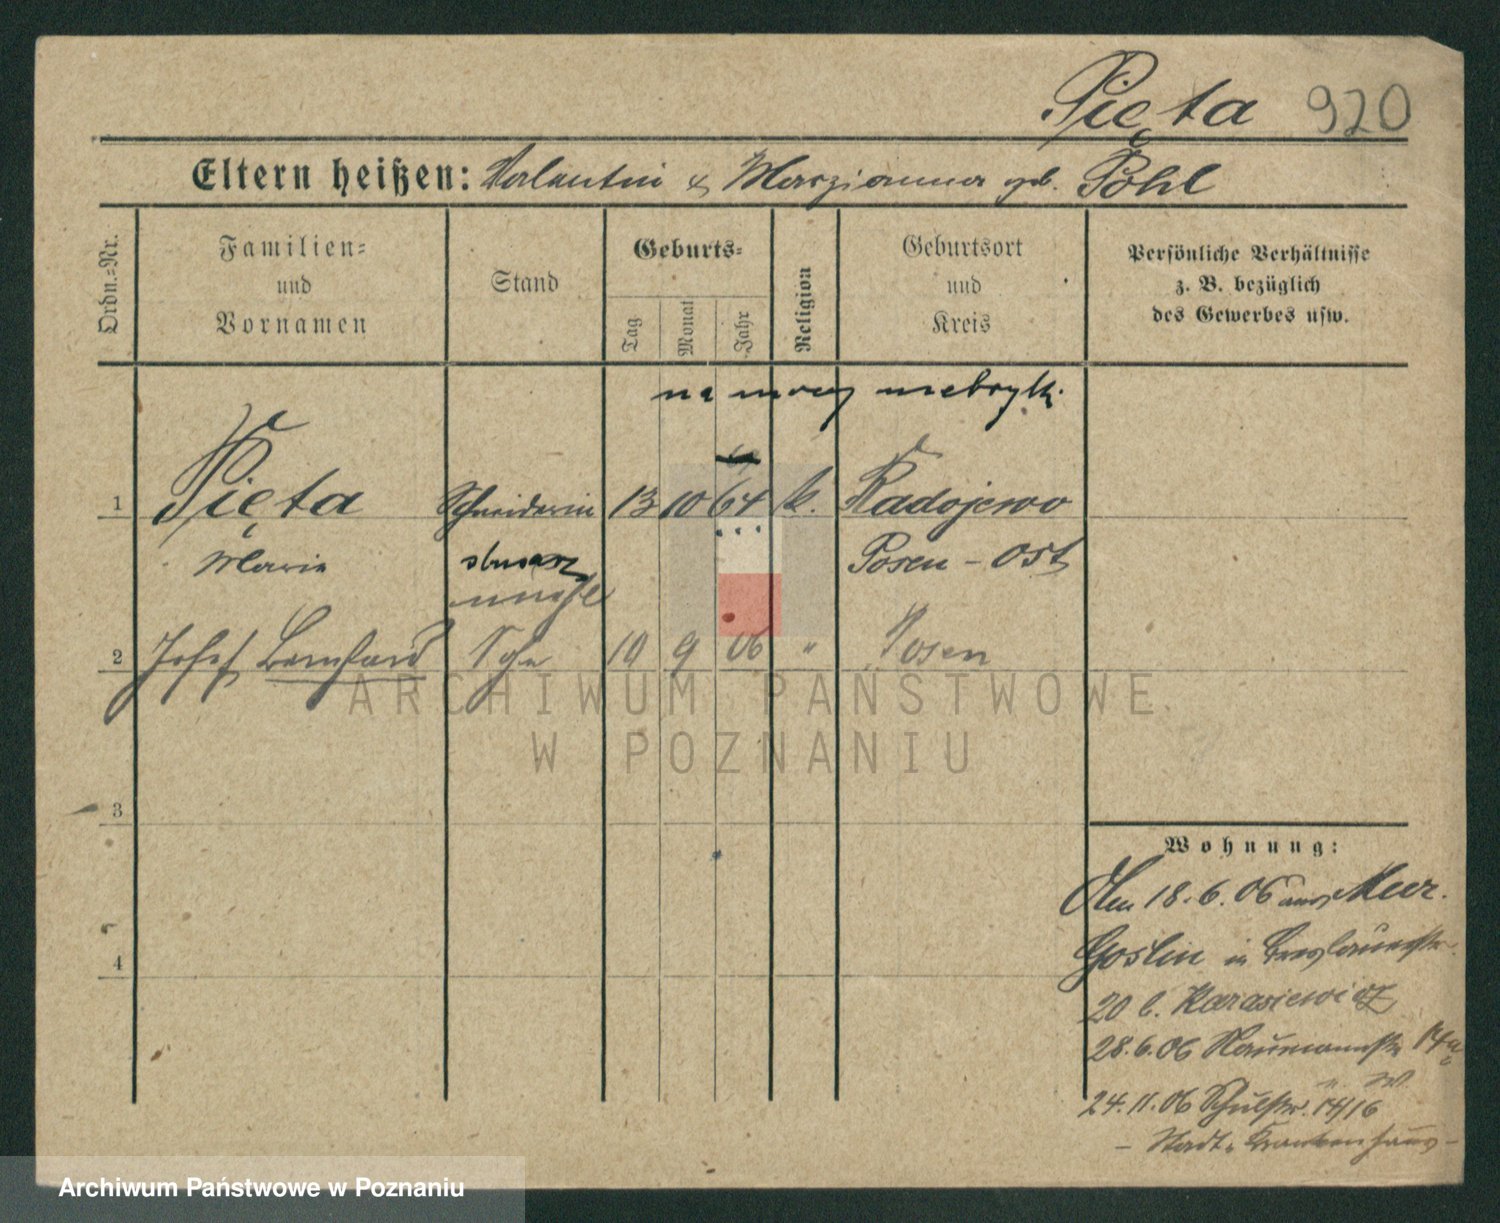 Pięta 920
Eltern heißen: Valentin & Marzianna geb. Pohl
Ordn.=Nr.
Familien=
und
Vornamen
Stand
Geburts=
Tag
Monat
Jahr
Religion
Geburtsort
und
Kreis
Persönliche Verhältnisse
z. B. bezüglich
des Gewerbes usw.
na mocy metryki
1 Pięta Schneiderin 13 10 64 k. Radojewo
Marie Posen - Ost
2 Josef Bernhard 10 9 06 " Posen
ARCHIWUM PAŃSTWOWE
W POZNANIU
3
Wohnung:
18.6.06 aus Mur.
4 Goslin in Breslauerstr.
20 b. Karasiewicz
28.6.06 Naumannstr. 14a
24.11.06 Schulstr. 14/16
- Stadt. Krankenhaus -
Archiwum Państwowe w Poznaniu